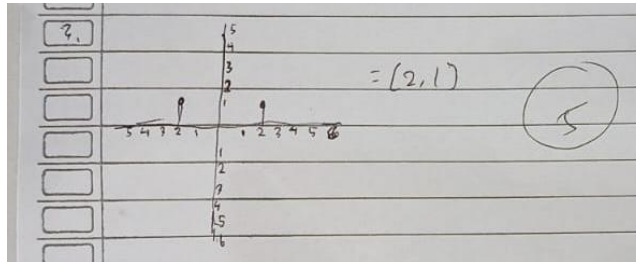 2.
5
4
3
2
1
= (2,1)
5 4 3 2 1 1 2 3 4 5 6
1
2
3
4
5
6
5